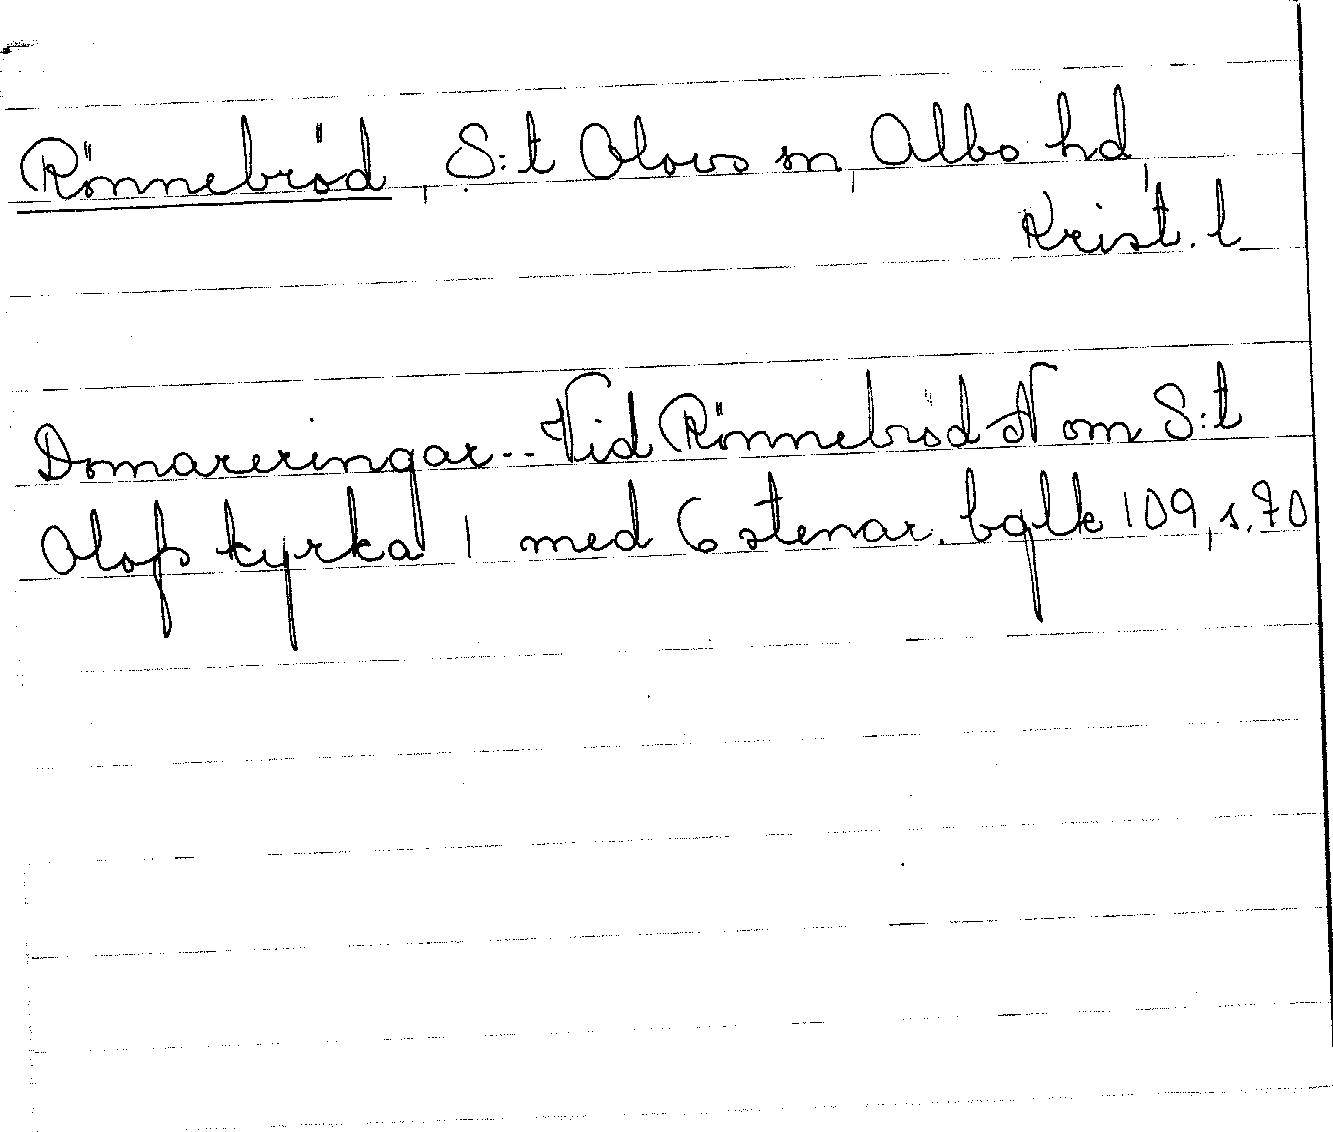 Rönnebröd, S:t Olovs sn, Albo hd,
Krist. l.
Domareringar.. Vid Rönnebröd N om S:t
Olofs kyrka 1 med 6 stenar. bglk 109, s. 70